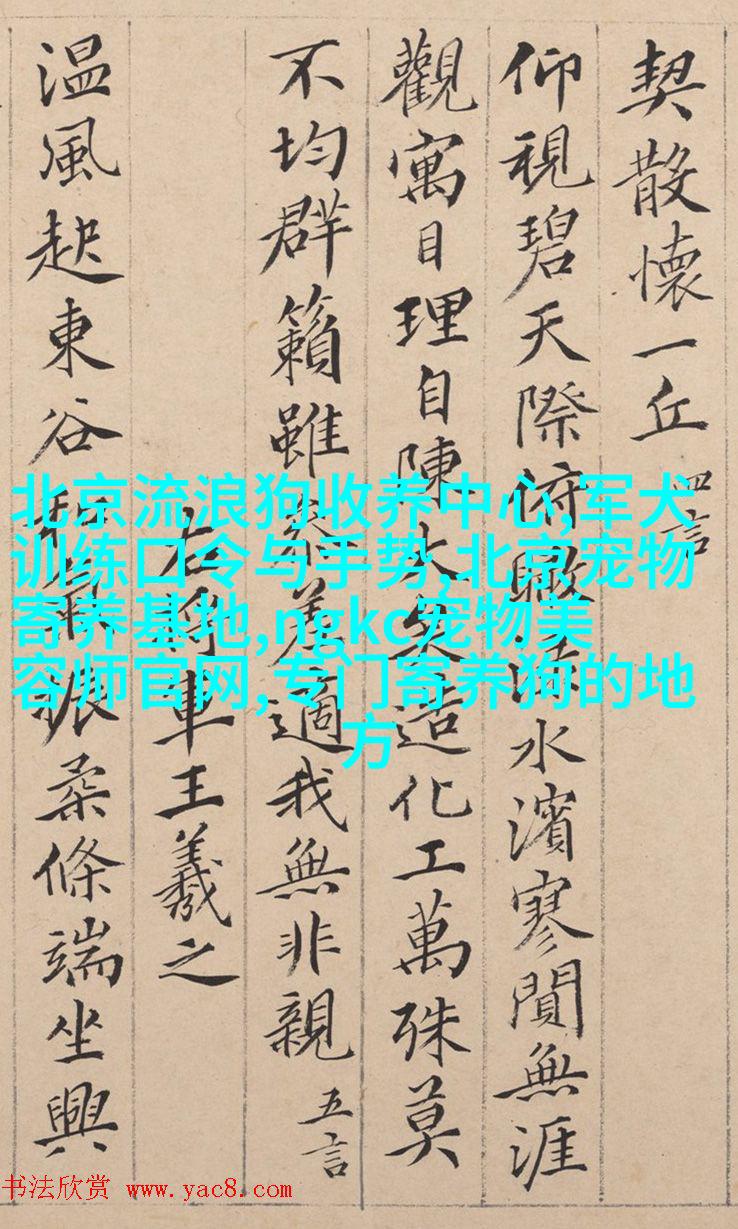 契散懷一丘 四言
仰視碧天際俯瞰淥水濱寥閴無涯
觀寓目理自陳大矣造化工萬殊莫
不均群籟雖參差適我無非親 五言
右將軍王羲之
温風起東谷和氣振柔條端坐興
北京流浪狗收养中心,军犬
训练口令与手势,北京宠物
寄养基地,ngkc宠物美
容师官网,专门寄养狗的地
方
书法欣赏 www.yac8.com